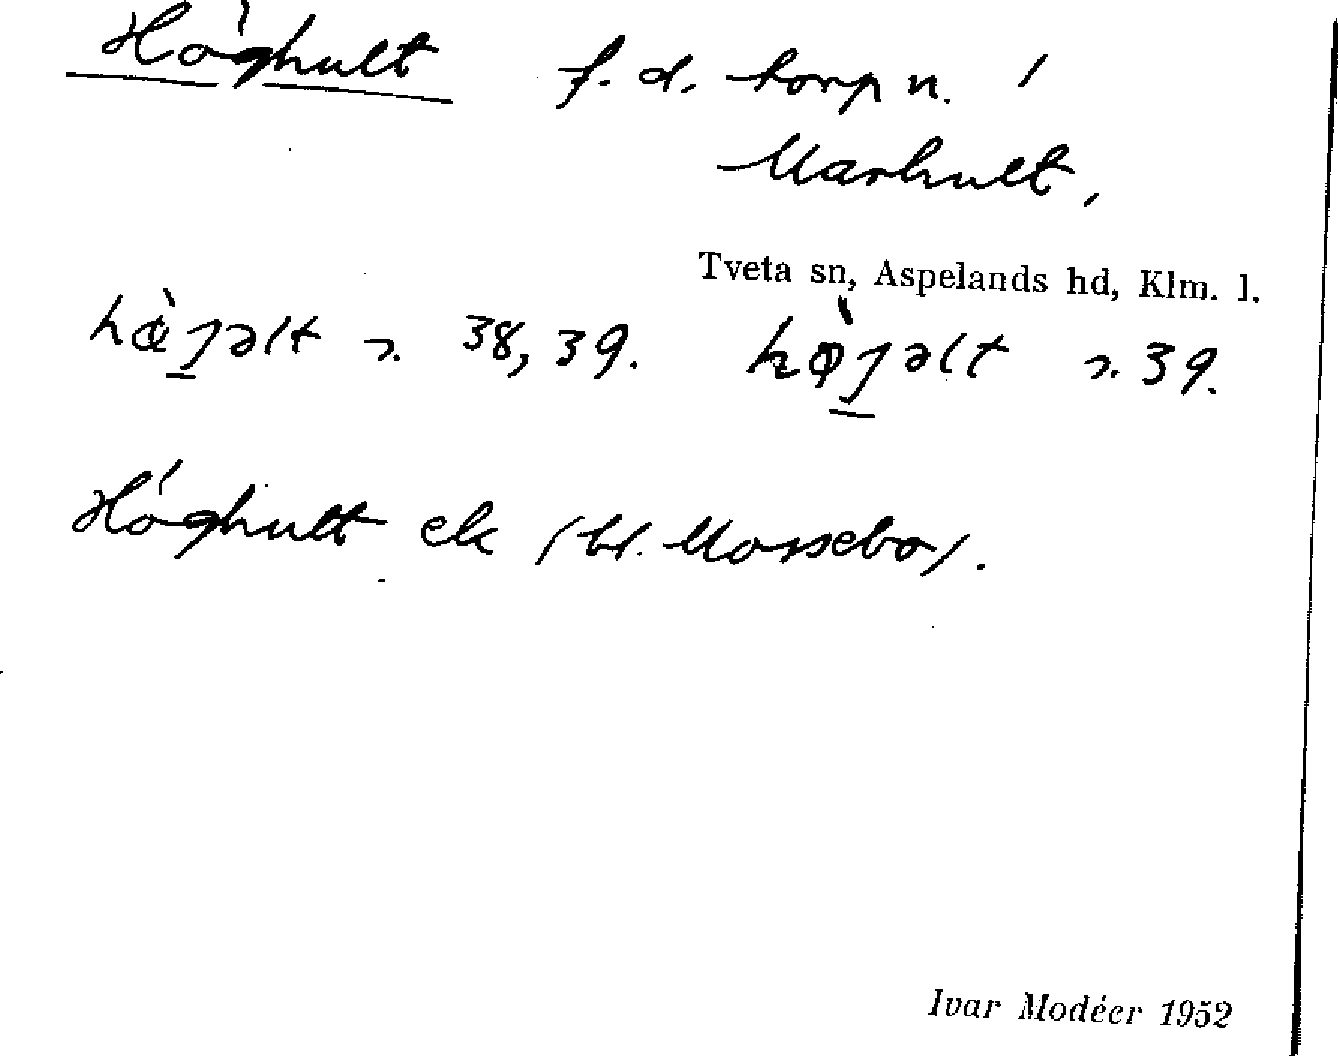 Höghult f. d. torp n. i
Marhult,
Tveta sn, Aspelands hd, Klm. l.
38, 39. 39.
Höghult ek (bl. Mossebo).
Ivar Modéer 1952